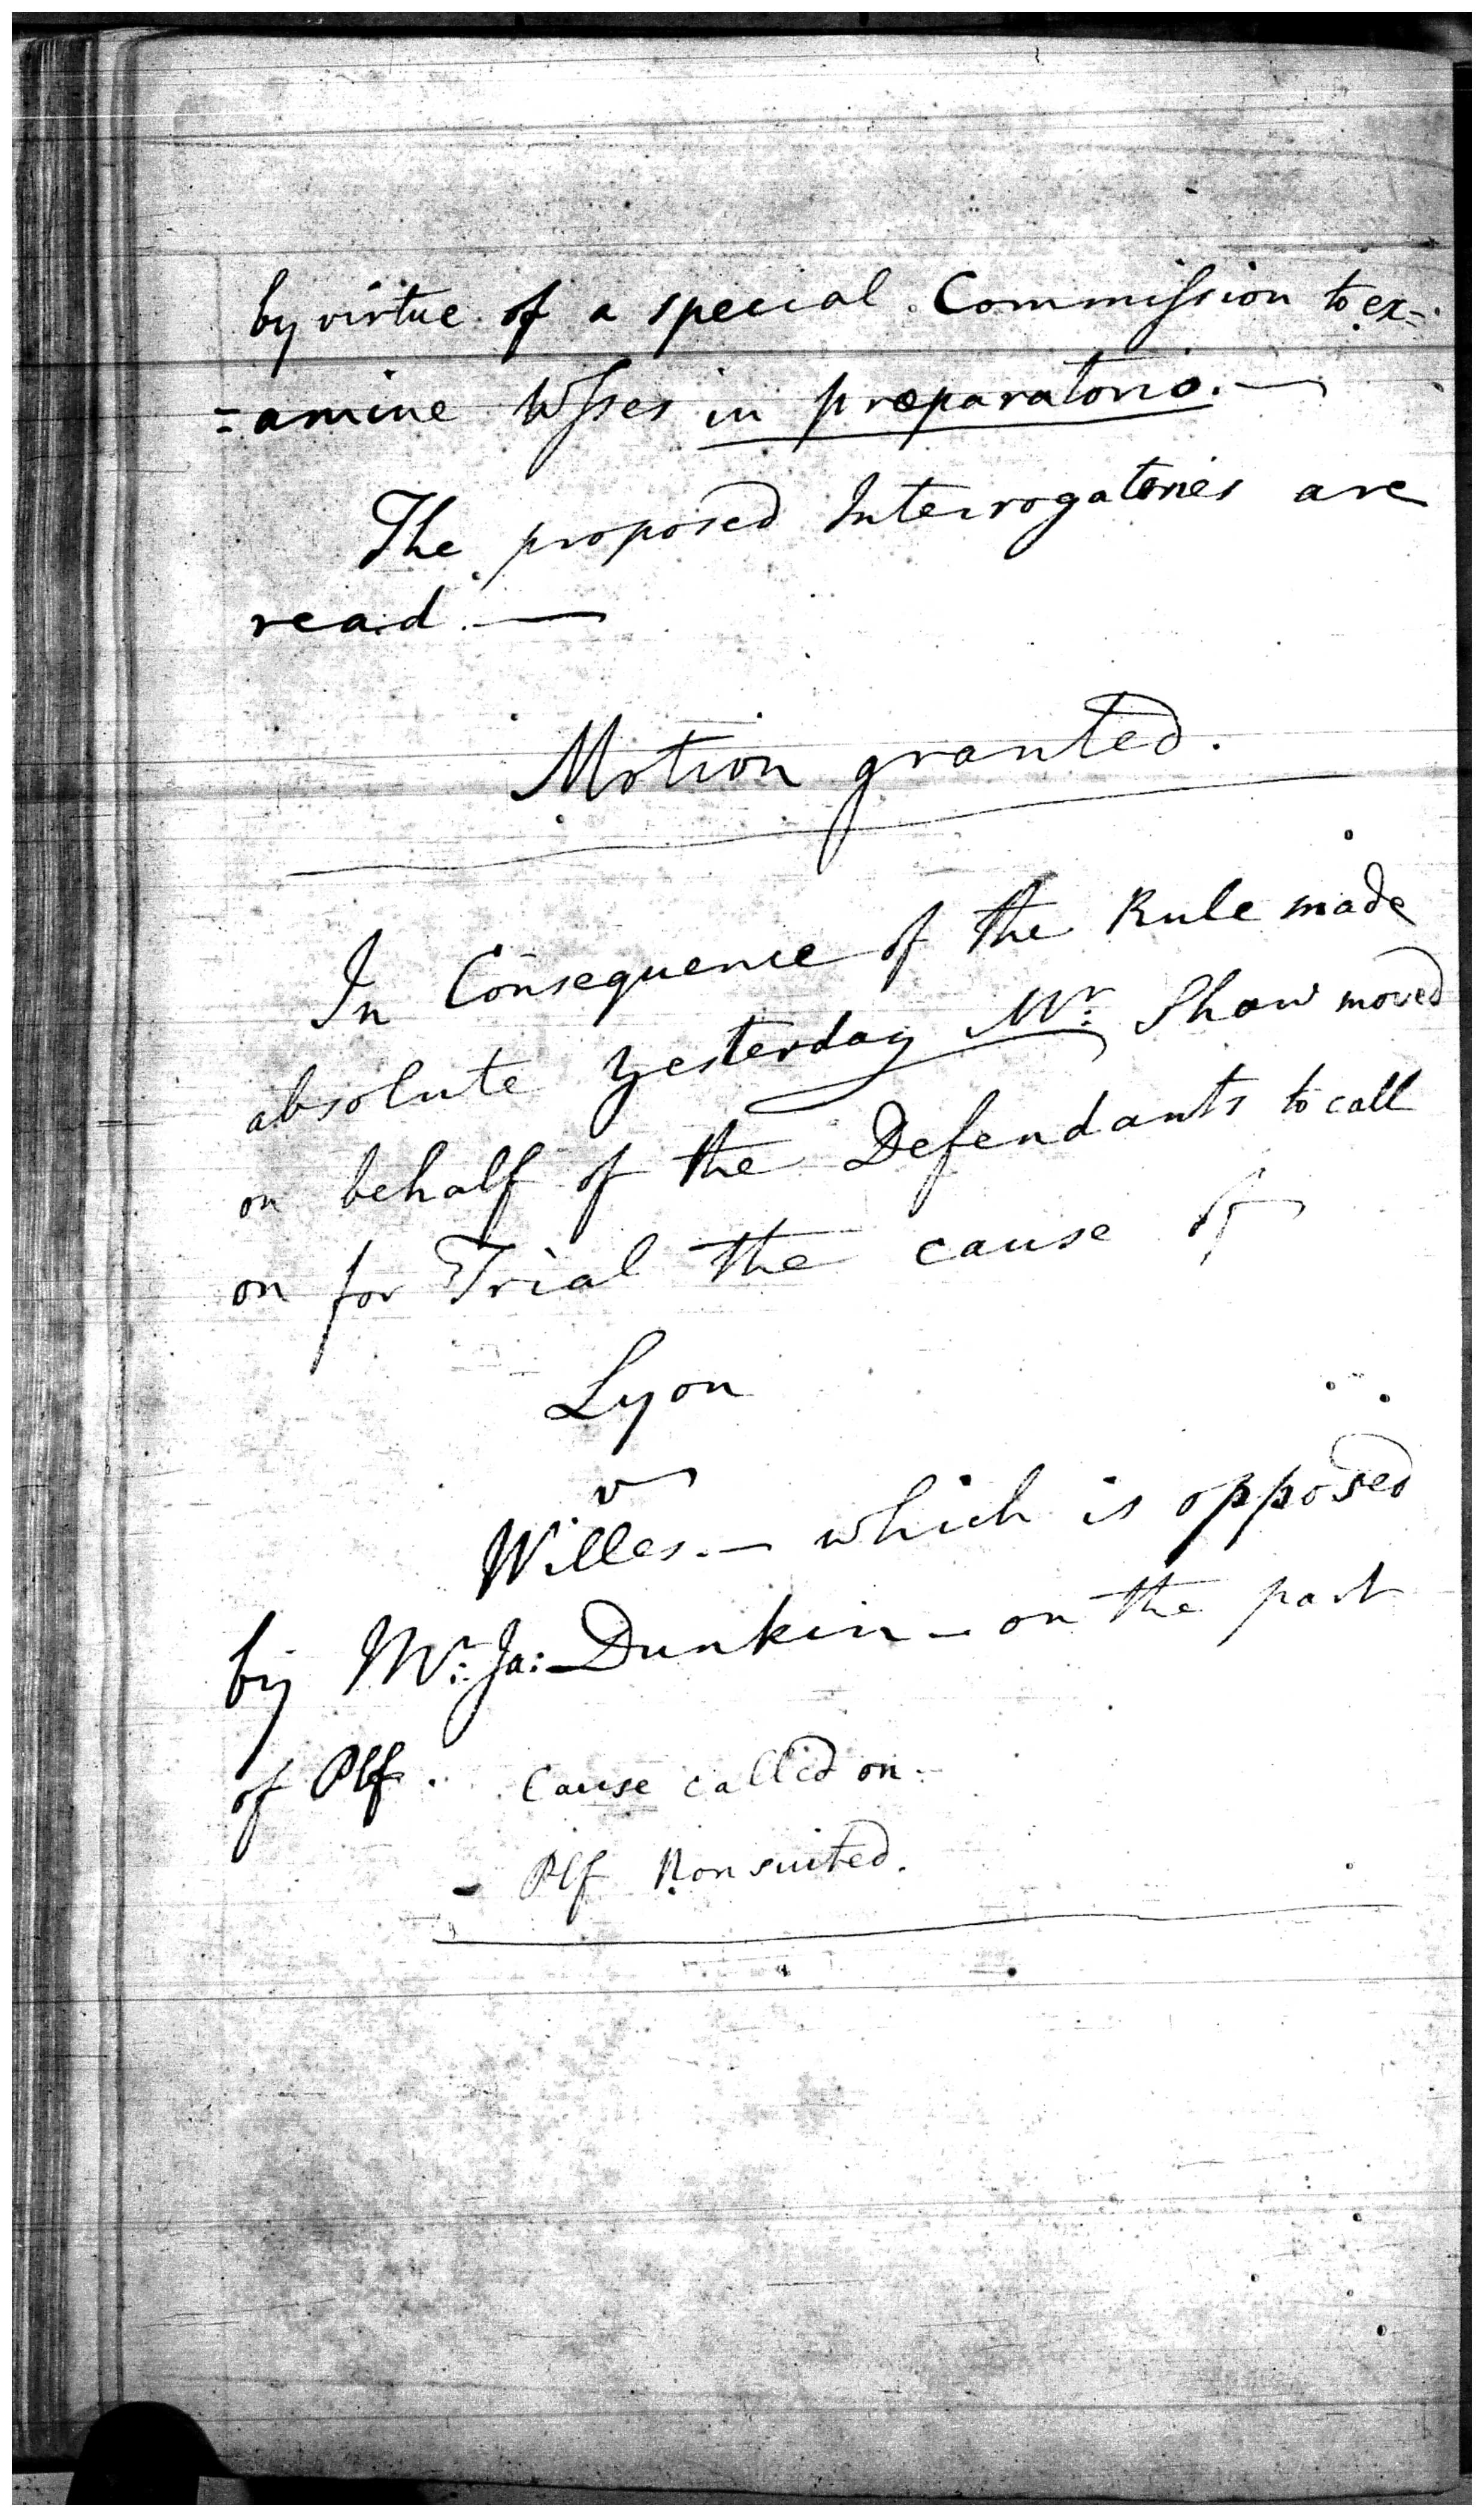 by virtue of a special Commission to ex=
=amine Wsses in præparatorio. —
The proposed Interrogatories are
read. —
Motion granted.
In Consequence of the Rule made
absolute yesterday Mr. Shaw moved
on behalf of the Defendants to call
on for Trial the cause of
Lyon
v
Willes. — which is opposed
by Mr: Ja: Dunkin — on the part
of Plf. Cause called on.
- Plf Nonsuited.